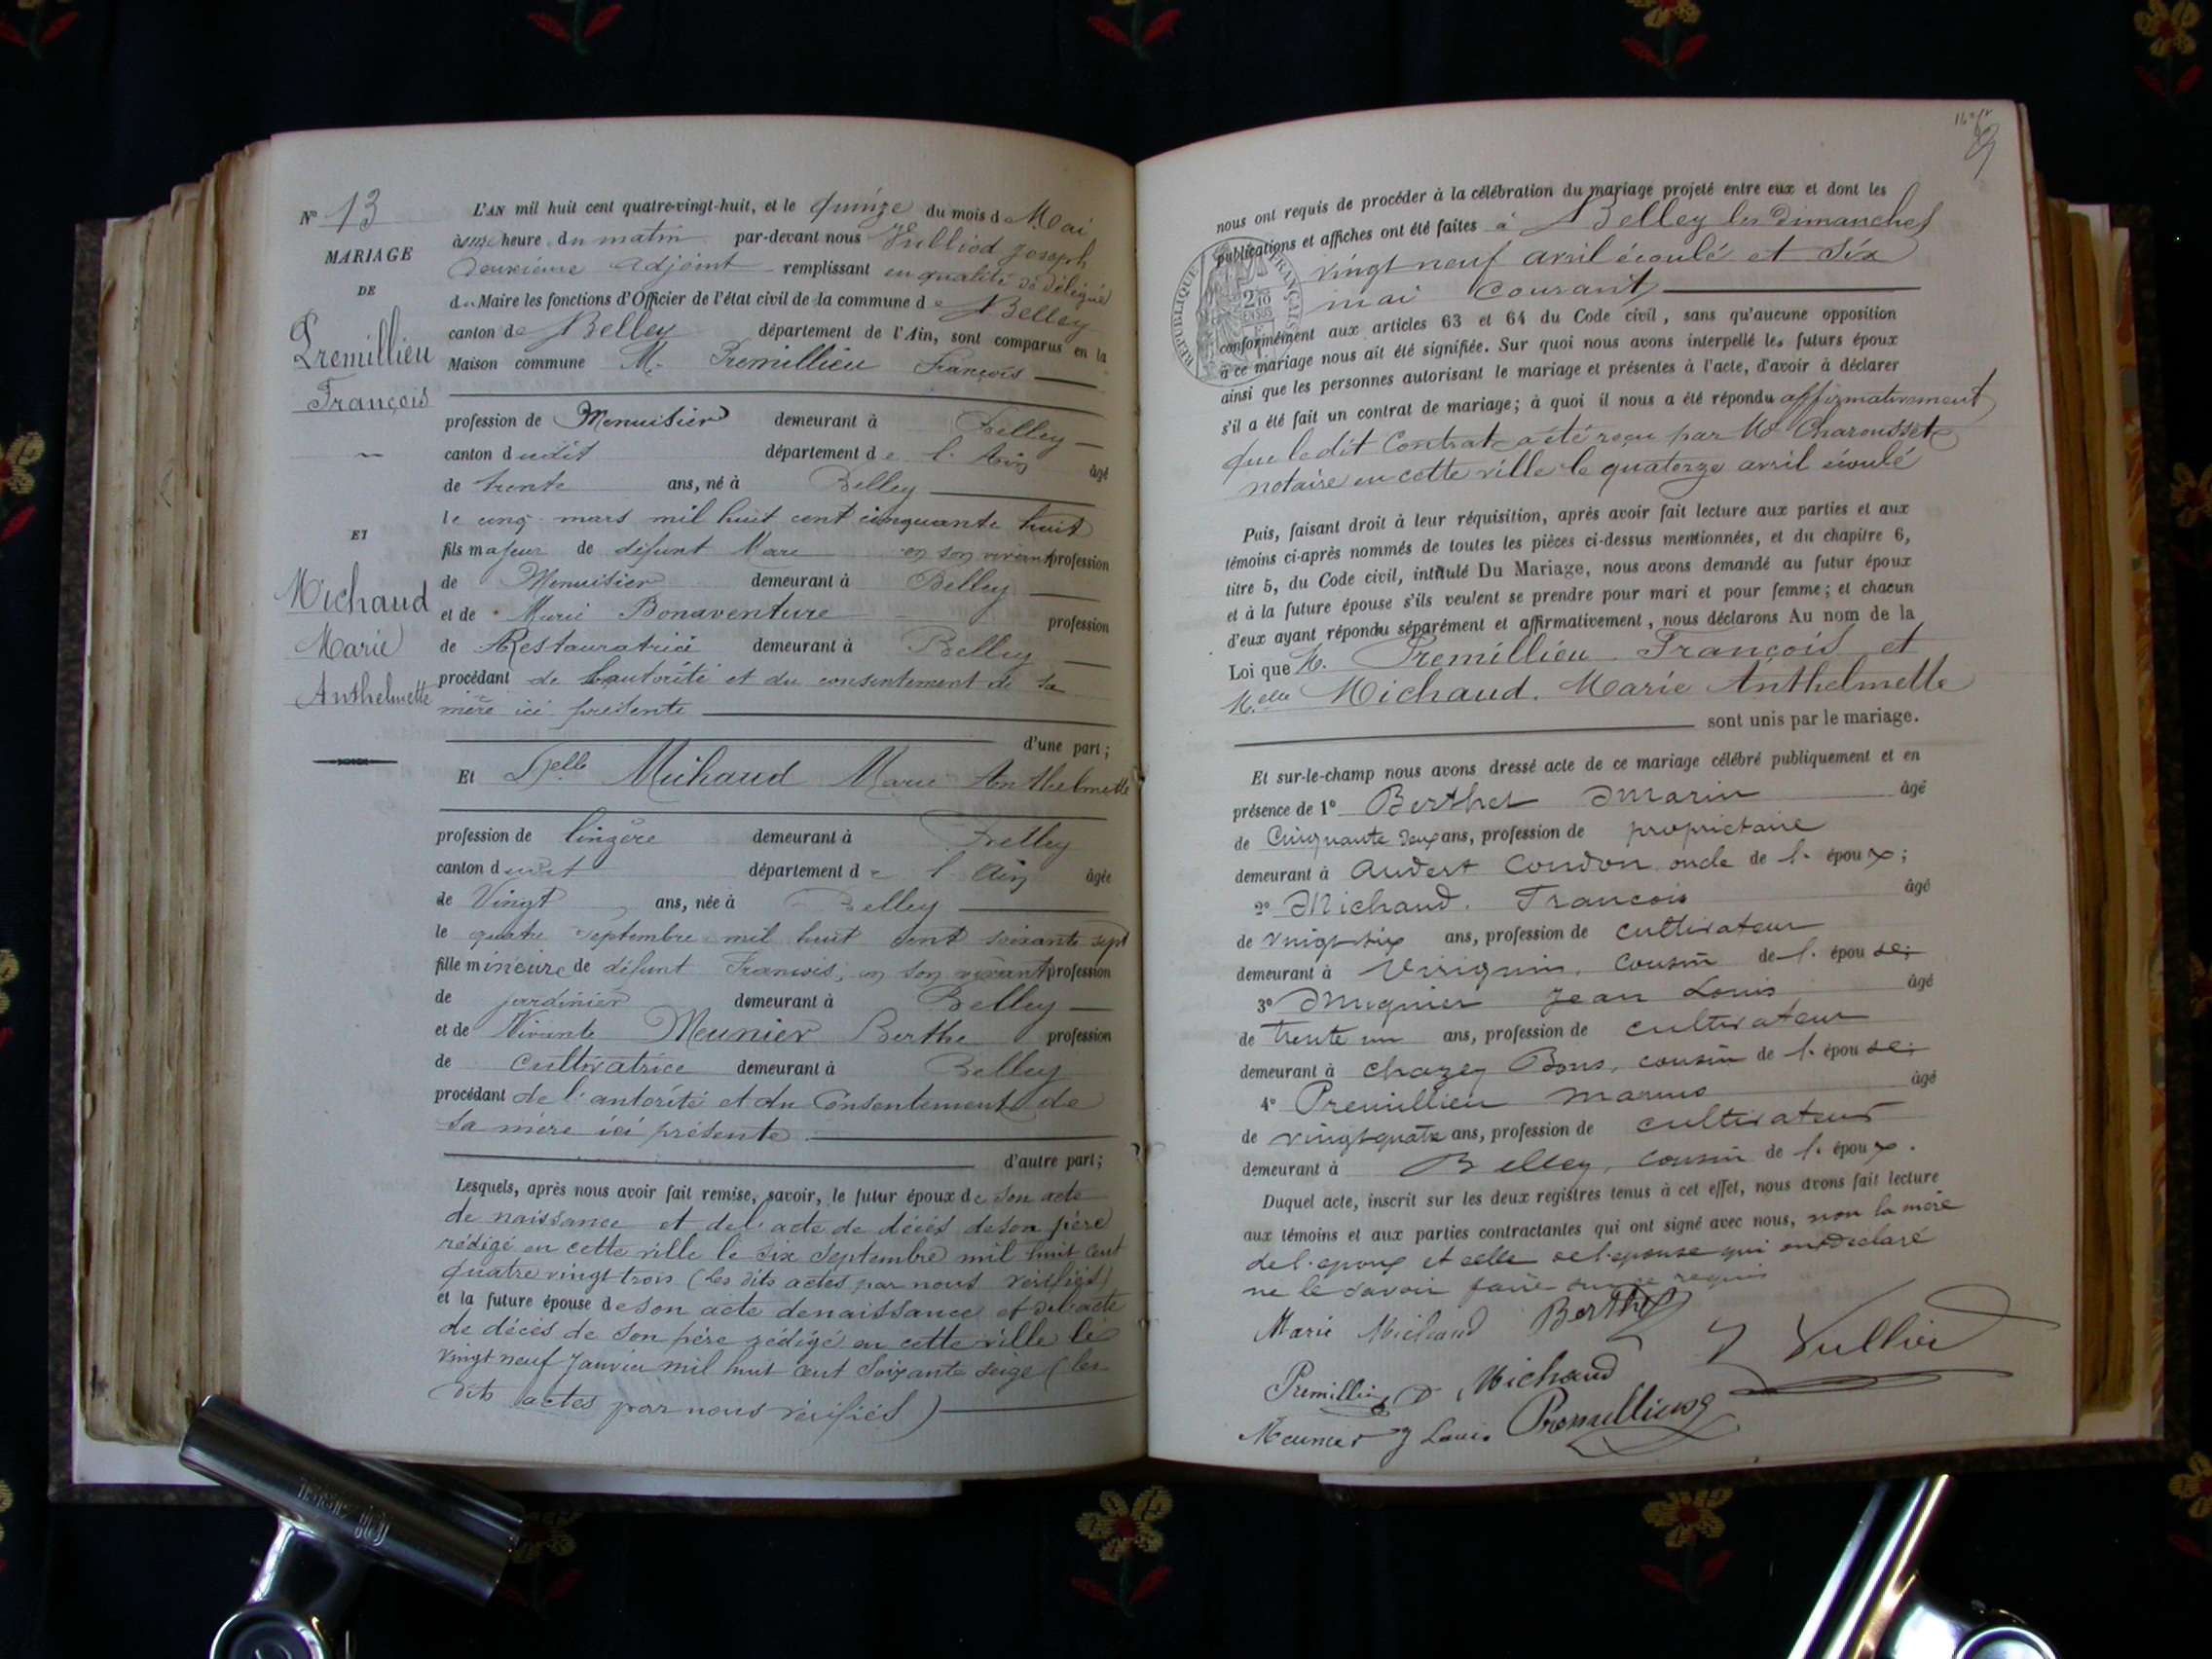 N° 13
MARIAGE
DE
Premillieu
François
ET
Michaud
Marie
Anthelmette
L'AN mil huit cent quatre-vingt-huit, et le quinze du mois de Mai
à onze heure du matin par-devant nous Vulliod Joseph
deuxième adjoint remplissant en qualité de délégué
du Maire les fonctions d'Officier de l'état civil de la commune de Belley
canton de Belley département de l'Ain, sont comparus en la
Maison commune M. Premillieu François
profession de Menuisier demeurant à Belley
canton dudit département de l'Ain âgé
de trente ans, né à Belley
le cinq mars mil huit cent cinquante huit
fils majeur de défunt Marc en son vivant profession
de Menuisier demeurant à Belley
et de Marie Bonaventure profession
de Restauratrice demeurant à Belley
procédant de l'autorité et du consentement de sa
mère ici présente
d'une part;
Et Delle Michaud Marie Anthelmette
profession de lingère demeurant à Belley
canton dudit département de l'Ain âgée
de Vingt ans, née à Belley
le quatre septembre mil huit cent soixante sept
fille mineure de défunt François, en son vivant profession
de jardinier demeurant à Belley
et de Vivante Meunier Berthe profession
de Cultivatrice demeurant à Belley
procédant de l'autorité et du Consentement de
sa mère ici présente
d'autre part;
Lesquels, après nous avoir fait remise, savoir, le futur époux de son acte
de naissance et de l'acte de décès de son père
rédigé en cette ville le six Septembre mil huit cent
quatre vingt trois (les dits actes par nous vérifiés)
et la future épouse de son acte de naissance et de l'acte
de décès de son père rédigé en cette ville le
vingt neuf Janvier mil huit cent soixante seize (les
dits actes par nous vérifiés)
nous ont requis de procéder à la célébration du mariage projeté entre eux et dont les
publications et affiches ont été faites à Belley les Dimanches
vingt neuf avril écoulé et Six
mai courant
conformément aux articles 63 et 64 du Code civil, sans qu'aucune opposition
à ce mariage nous ait été signifiée. Sur quoi nous avons interpellé les futurs époux
ainsi que les personnes autorisant le mariage et présentes à l'acte, d'avoir à déclarer
s'il a été fait un contrat de mariage; à quoi il nous a été répondu affirmativement
que le dit Contrat a été reçu par Me Charousset
notaire en cette ville le quatorze avril écoulé
Puis, faisant droit à leur réquisition, après avoir fait lecture aux parties et aux
témoins ci-après nommés de toutes les pièces ci-dessus mentionnées, et du chapitre 6,
titre 5, du Code civil, intitulé Du Mariage, nous avons demandé au futur époux
et à la future épouse s'ils veulent se prendre pour mari et pour femme; et chacun
d'eux ayant répondu séparément et affirmativement, nous déclarons Au nom de la
Loi que M. Premillieu François et
M.elle Michaud. Marie Anthelmette
sont unis par le mariage.
Et sur-le-champ nous avons dressé acte de ce mariage célébré publiquement et en
présence de 1° Berthet Marin âgé
de Cinquante deux ans, profession de propriétaire
demeurant à Andert Condon oncle de l. époux;
2° Michaud. François âgé
de vingt six ans, profession de cultivateur
demeurant à Virignin, cousin de l. épouse;
3° Mugnier Jean Louis âgé
de trente un ans, profession de cultivateur
demeurant à Chazey Bons, cousin de l. épouse;
4° Premillieu Marius âgé
de vingt quatre ans, profession de cultivateur
demeurant à Belley, cousin de l. époux.
Duquel acte, inscrit sur les deux registres tenus à cet effet, nous avons fait lecture
aux témoins et aux parties contractantes qui ont signé avec nous, non la mère
de l'époux et celle de l'épouse qui ont déclaré
ne le savoir faire sur ce requis
Marie Michaud Berthet
J Vulliod
Premillieu Michaud
Meunier J Louis Premillieu
REPUBLIQUE FRANÇAISE